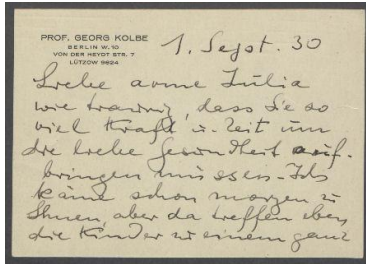 PROF. GEORG KOLBE
BERLIN W. 10
VON DER HEYDT STR. 7
LÜTZOW 9624
1. Sept. 30
Liebe arme Julia
wie traurig, dass Sie so
viel Kraft u. Zeit um
die liebe Gesundheit auf-
bringen müssen. Ich
käme schon morgen zu
Ihnen, aber da treffen eben
die Kinder zu einem ganz